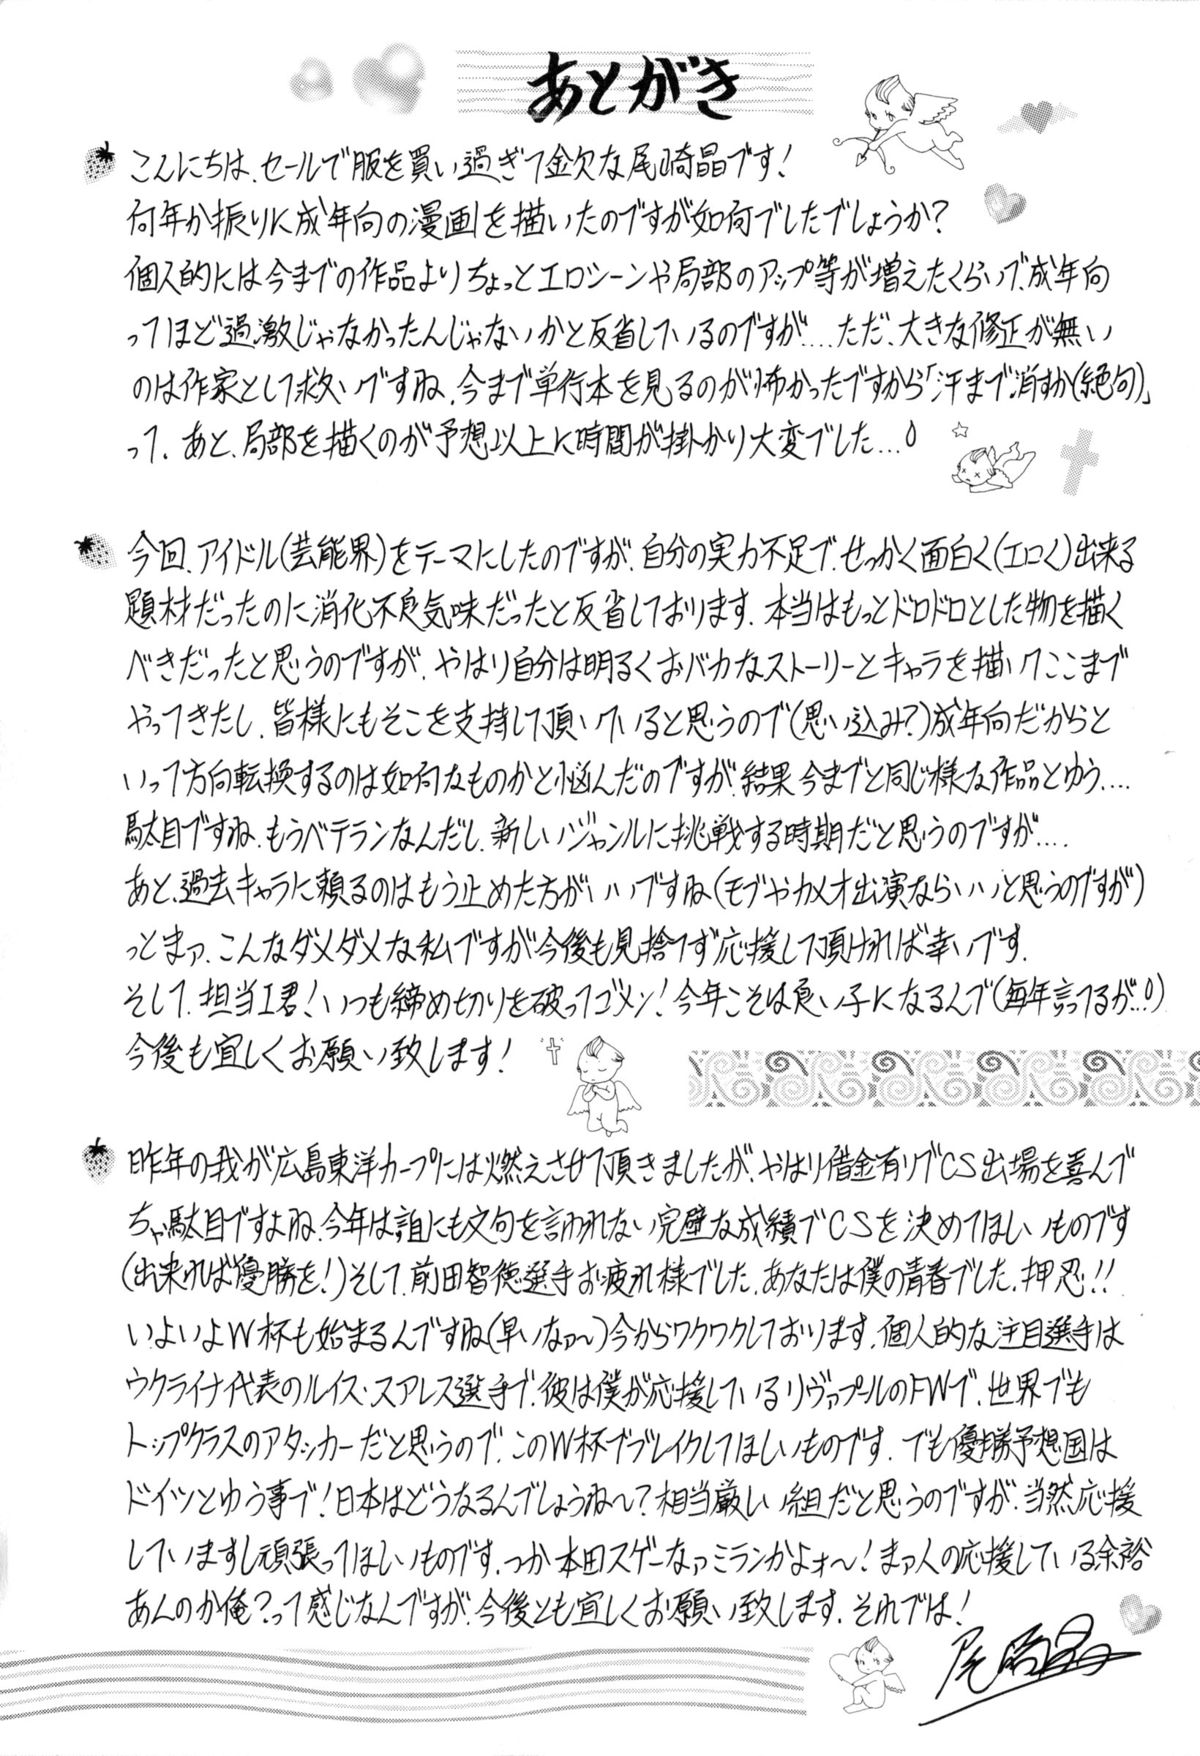 あとがき
こんにちは、セールで服を買い過ぎて金欠な尾崎晶です!
何年か振りに成年向の漫画を描いたのですが如何でしたでしょうか?
個人的には今までの作品よりちょっとエロシーンや局部のアップ等が増えたくらいで、成年向
ってほど過激じゃなかったんじゃないかと反省しているのですが....ただ、大きな修正が無い
のは作家として救いですね、今まで単行本を見るのが怖かったですから「汗まで消すか(絶句)」
って、あと、局部を描くのが予想以上に時間が掛かり大変でした...
今回、アイドル(芸能界)をテーマにしたのですが、自分の実力不足で、せっかく面白く(エロく)出来る
題材だったのに消化不良気味だったと反省しております、本当はもっとドロドロとした物を描く
べきだったと思うのですが、やはり自分は明るくおバカなストーリーとキャラを描いてここまで
やってきたし、皆様にもそこを支持して頂いていると思うので(思い込み?)成年向だからと
いって方向転換するのは如何なものかと悩んだのですが、結果今までと同じ様な作品とゆう....
駄目ですね、もうベテランなんだし、新しいジャンルに挑戦する時期だと思うのですが....
あと、過去キャラに頼るのはもう止めた方がいいですね(モブやカメオ出演ならいいと思うのですが)
っとまァ、こんなダメダメな私ですが今後も見捨てず応援して頂ければ幸いです.
そして、担当I君!いつも締め切りを破ってゴメン!今年こそは良い子になるんで(毎年言ってるが..)
今後も宜しくお願い致します!
昨年の我が広島東洋カープには燃えさせて頂きましたが、やはり借金有りでCS出場を喜んで
ちゃ駄目ですよね、今年は誰にも文句を言われない完璧な成績でCSを決めてほしいものです
(出来れば優勝を!)そして、前田智徳選手お疲れ様でした、あなたは僕の青春でした、押忍!!
いよいよW杯も始まるんですね(早いなァ〜)今からワクワクしております、個人的な注目選手は
ウクライナ代表のルイス・スアレス選手で、彼は僕が応援しているリヴァプールのFWで、世界でも
トップクラスのアタッカーだと思うので、このW杯でブレイクしてほしいものです、でも優勝予想国は
ドイツとゆう事で!日本はどうなるんでしょうね〜?相当厳しい組だと思うのですが、当然応援
していますし頑張ってほしいものです、つか本田スゲーなァミランかよォ〜!まァ人の応援している余裕
あんのか俺?って感じなんですが、今後とも宜しくお願い致します、それでは!
尾崎晶